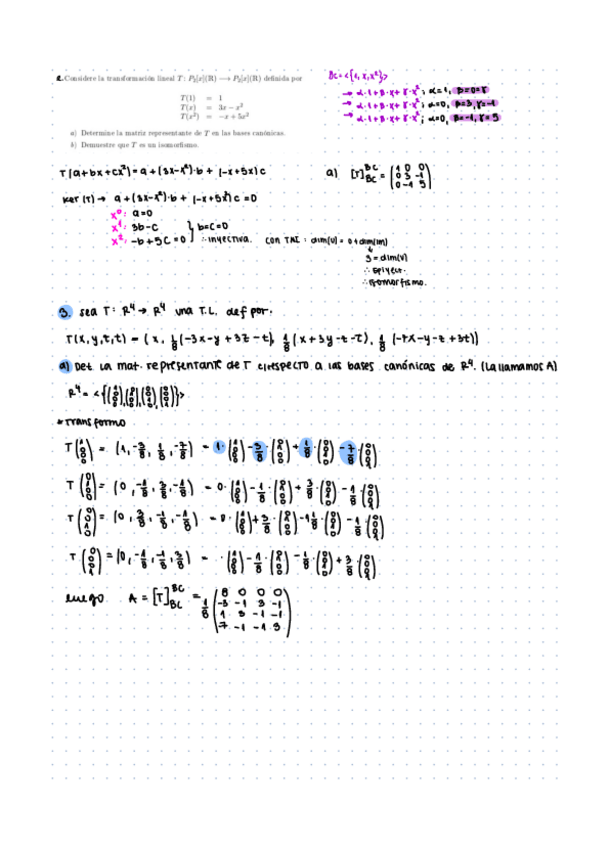 2. Considere la transformación lineal T : P₂[x](ℝ) ⟶ P₂[x](ℝ) definida por
T(1) = 1
T(x) = 3x − x²
T(x²) = −x + 5x²
a) Determine la matriz representante de T en las bases canónicas.
b) Demuestre que T es un isomorfismo.
Bc = <{1, x, x²}>
→ α·1 + β·x + γ·x² ; α=1, β=0=γ
→ α·1 + β·x + γ·x² ; α=0, β=3, γ=-1
→ α·1 + β·x + γ·x² ; α=0, β=-1, γ=5
T(a+bx+cx²) = a + (3x-x²)·b + (-x+5x²)c
a) [T]BC BC = (1 0 0 / 0 3 -1 / 0 -1 5)
Ker(T) → a + (3x-x²)·b + (-x+5x²)c = 0
x⁰: a=0
x¹: 3b-c
x²: -b+5c=0 } b=c=0 ∴ inyectiva. con TNI: dim(V) = 0+dim(Im)
3 = dim(V)
∴ Epiyect.
∴ Isomorfismo.
3. sea T: R⁴ → R⁴ una T.L. def por.
T(x,y,z,t) = (x, 1/8(-3x-y+3z-t), 1/8(x+3y-z-t), 1/8(-7x-y-z+3t))
a) Det la mat. representante de T c/respecto a las bases canónicas de R⁴. (La llamamos A)
R⁴ = <{(1 0 0 0), (0 1 0 0), (0 0 1 0), (0 0 0 1)}>
* Transformo
T(1 0 0 0) = (1, -3/8, 1/8, -7/8) = 1·(1 0 0 0) - 3/8·(0 1 0 0) + 1/8·(0 0 1 0) - 7/8·(0 0 0 1)
T(0 1 0 0) = (0, -1/8, 3/8, -1/8) = 0·(1 0 0 0) - 1/8·(0 1 0 0) + 3/8·(0 0 1 0) - 1/8·(0 0 0 1)
T(0 0 1 0) = (0, 3/8, -1/8, -1/8) = 0·(1 0 0 0) + 3/8·(0 1 0 0) - 1/8·(0 0 1 0) - 1/8·(0 0 0 1)
T(0 0 0 1) = (0, -1/8, -1/8, 3/8) = ·(1 0 0 0) - 1/8·(0 1 0 0) - 1/8·(0 0 1 0) + 3/8·(0 0 0 1)
Luego A = [T]BC BC = 1/8 (8 0 0 0 / -3 -1 3 -1 / 1 3 -1 -1 / 7 -1 -1 3)